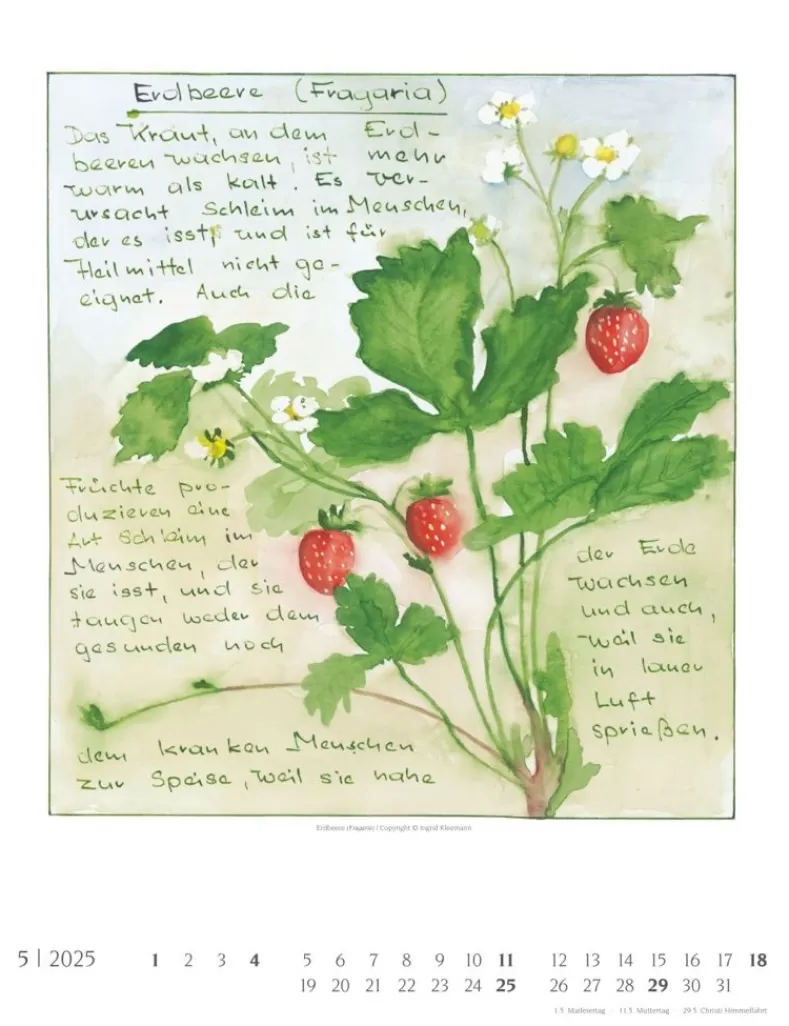 Erdbeere (Fragaria)
Das Kraut, an dem Erd-
beeren wachsen, ist mehr
warm als kalt. Es ver-
ursacht Schleim im Menschen,
der es isst, und ist für
Heilmittel nicht ge-
eignet. Auch die
Früchte pro-
duzieren eine
Art Schleim im
Menschen, der
sie isst, und sie
taugen weder dem
gesunden noch
dem kranken Menschen
zur Speise, weil sie nahe
der Erde
wachsen
und auch,
weil sie
in lauer
Luft
sprießen.
Erdbeere (Fragaria) | Copyright © Ingrid Kleemann
5 | 2025 1 2 3 4 5 6 7 8 9 10 11 12 13 14 15 16 17 18
19 20 21 22 23 24 25 26 27 28 29 30 31
1.5. Maifeiertag 11.5. Muttertag 29.5. Christi Himmelfahrt